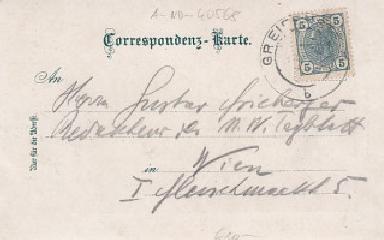 A-ND-60568
Correspondenz-Karte.
5 5
5 5
GREIF
b
An
Herrn Gustav
Redakteur des N. W. Tagblatt
in Wien
I Fleischmarkt 5.
Nur für die Adresse.